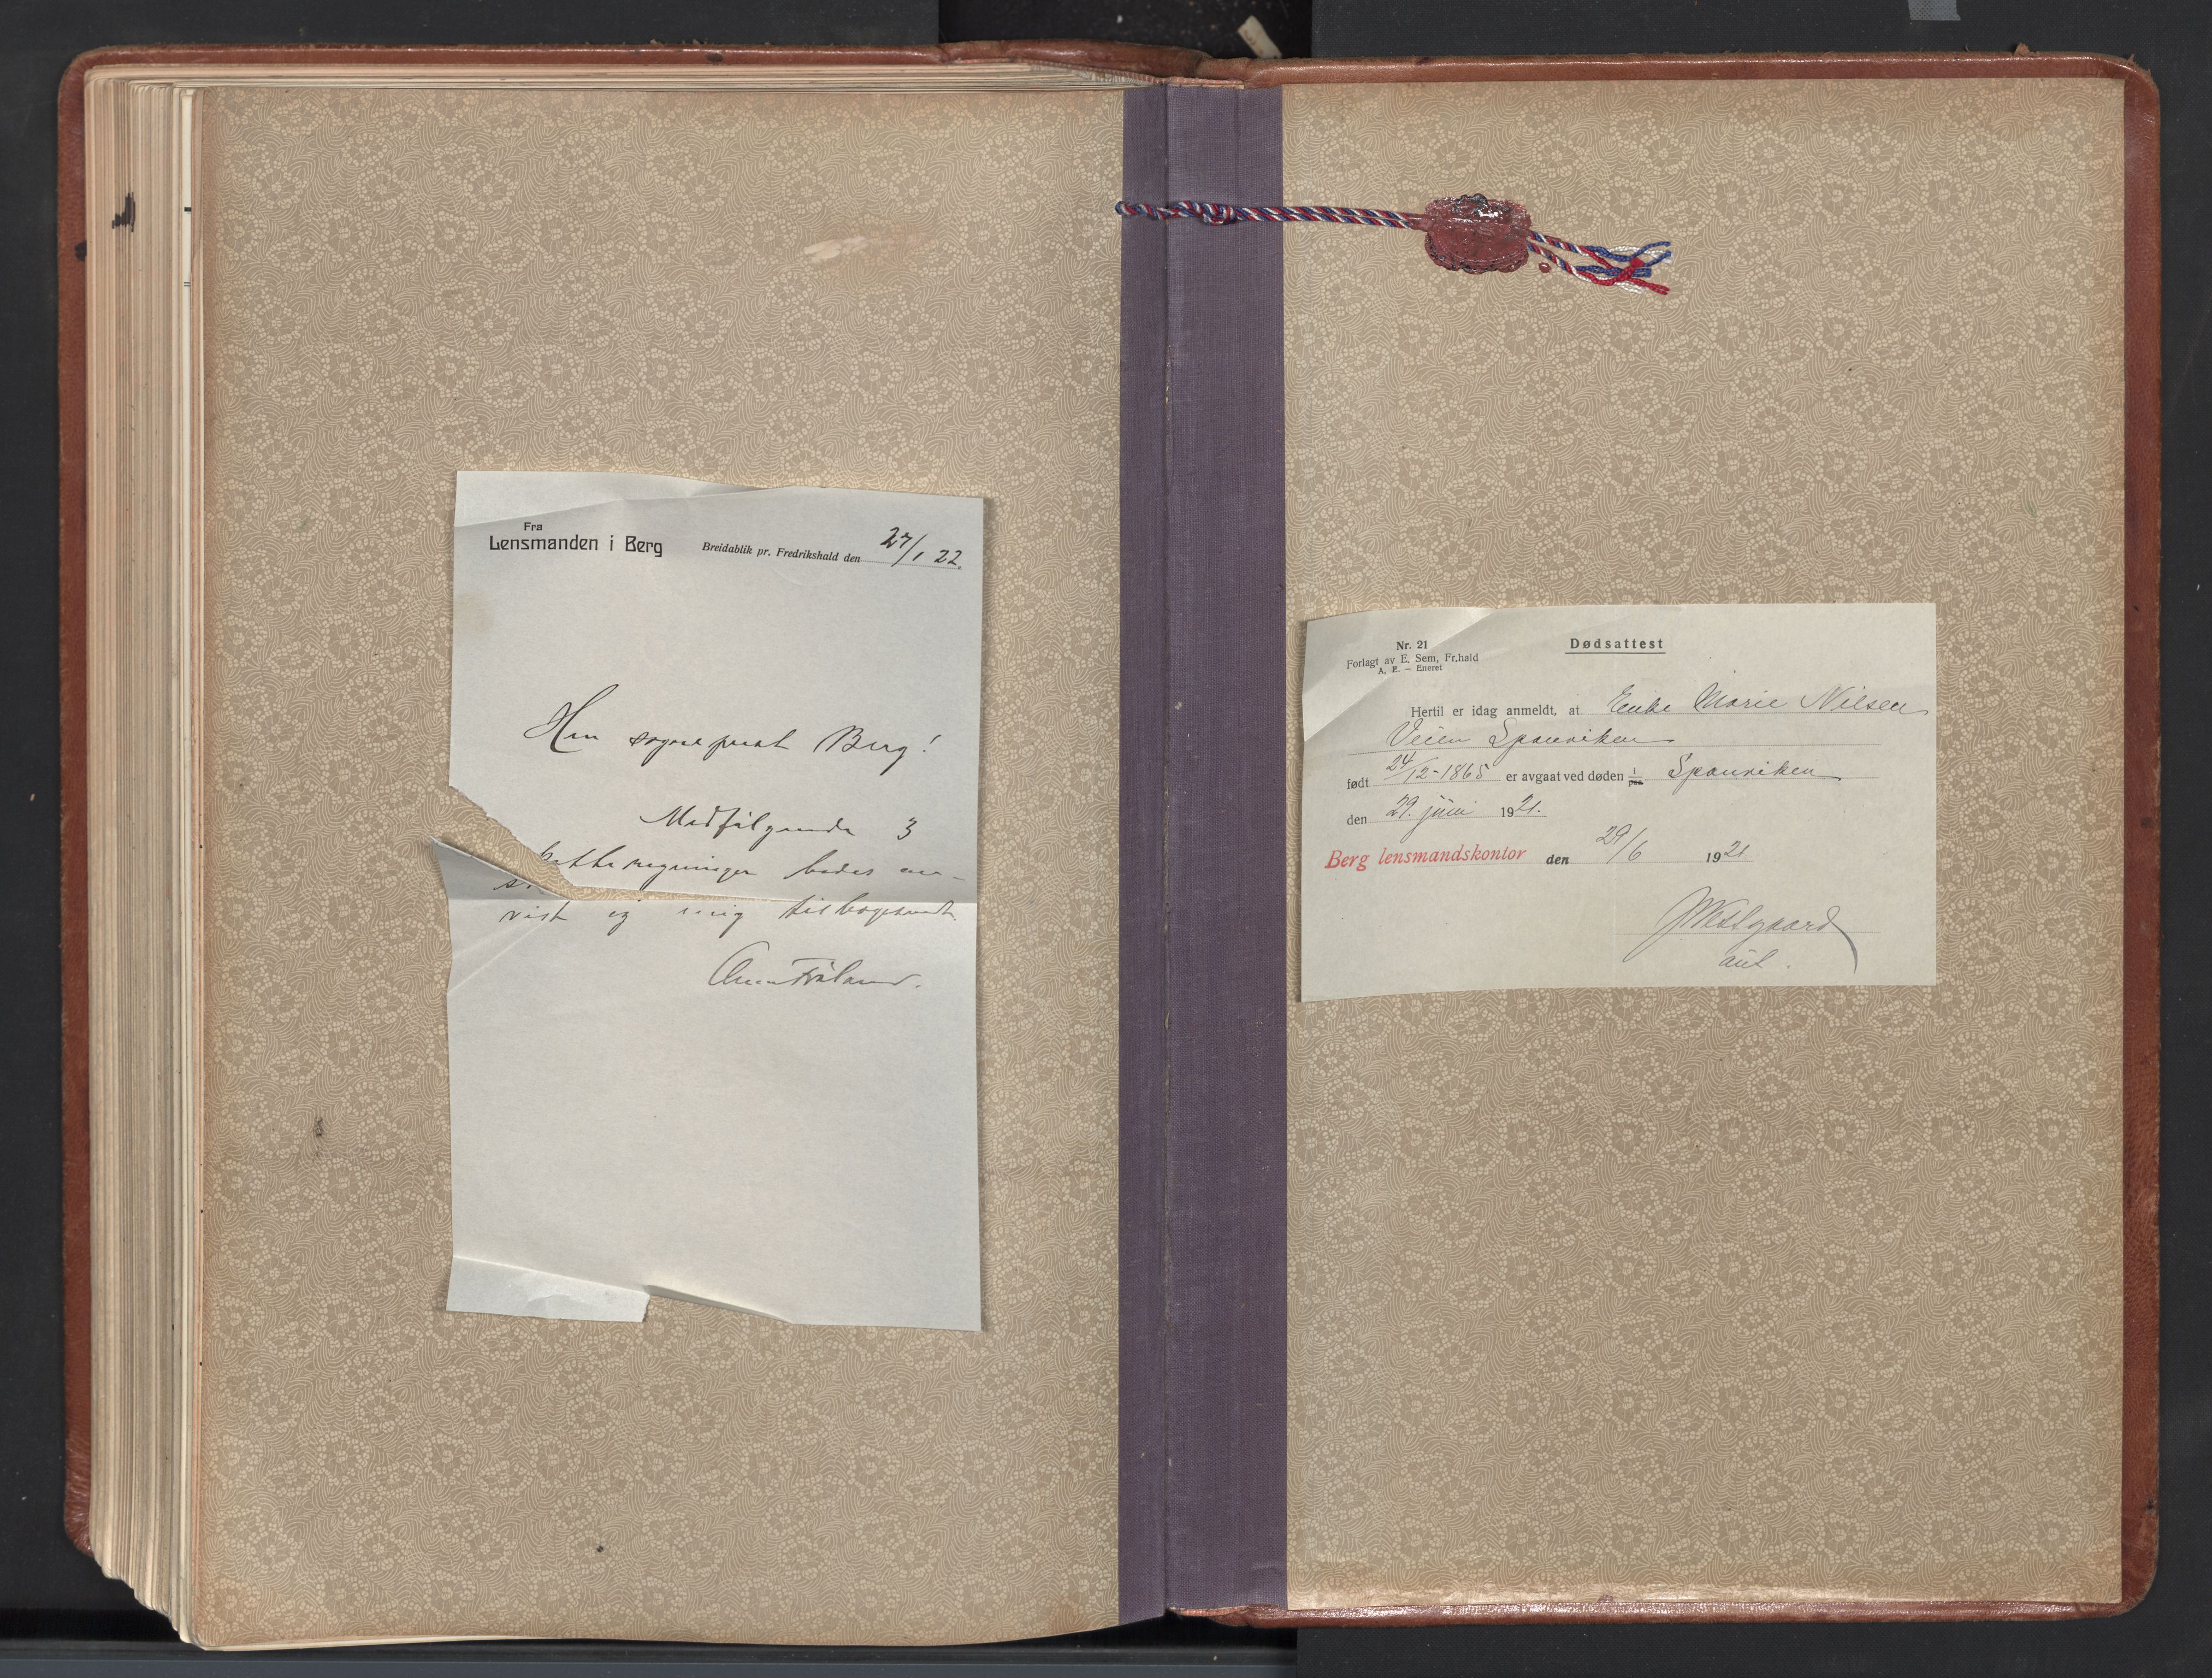 Fra
Lensmanden i Berg
Breidablik pr. Fredrikshald den 27/1 22.
Hr. sogneprest Berg!
Medfølgende 3
regninger bedes an-
vist og mig tilbagesendt
Nr. 21
Forlagt av E. Sem, Fr.hald
A. E. — Eneret
Dødsattest
Hertil er idag anmeldt, at Enke Marie Nilsen
Veien Sponviken
født 24/12-1865 er avgaat ved døden i Sponviken
den 29. juni 1921.
Berg lensmandskontor den 29/6 1921
J Westgaard
aut.